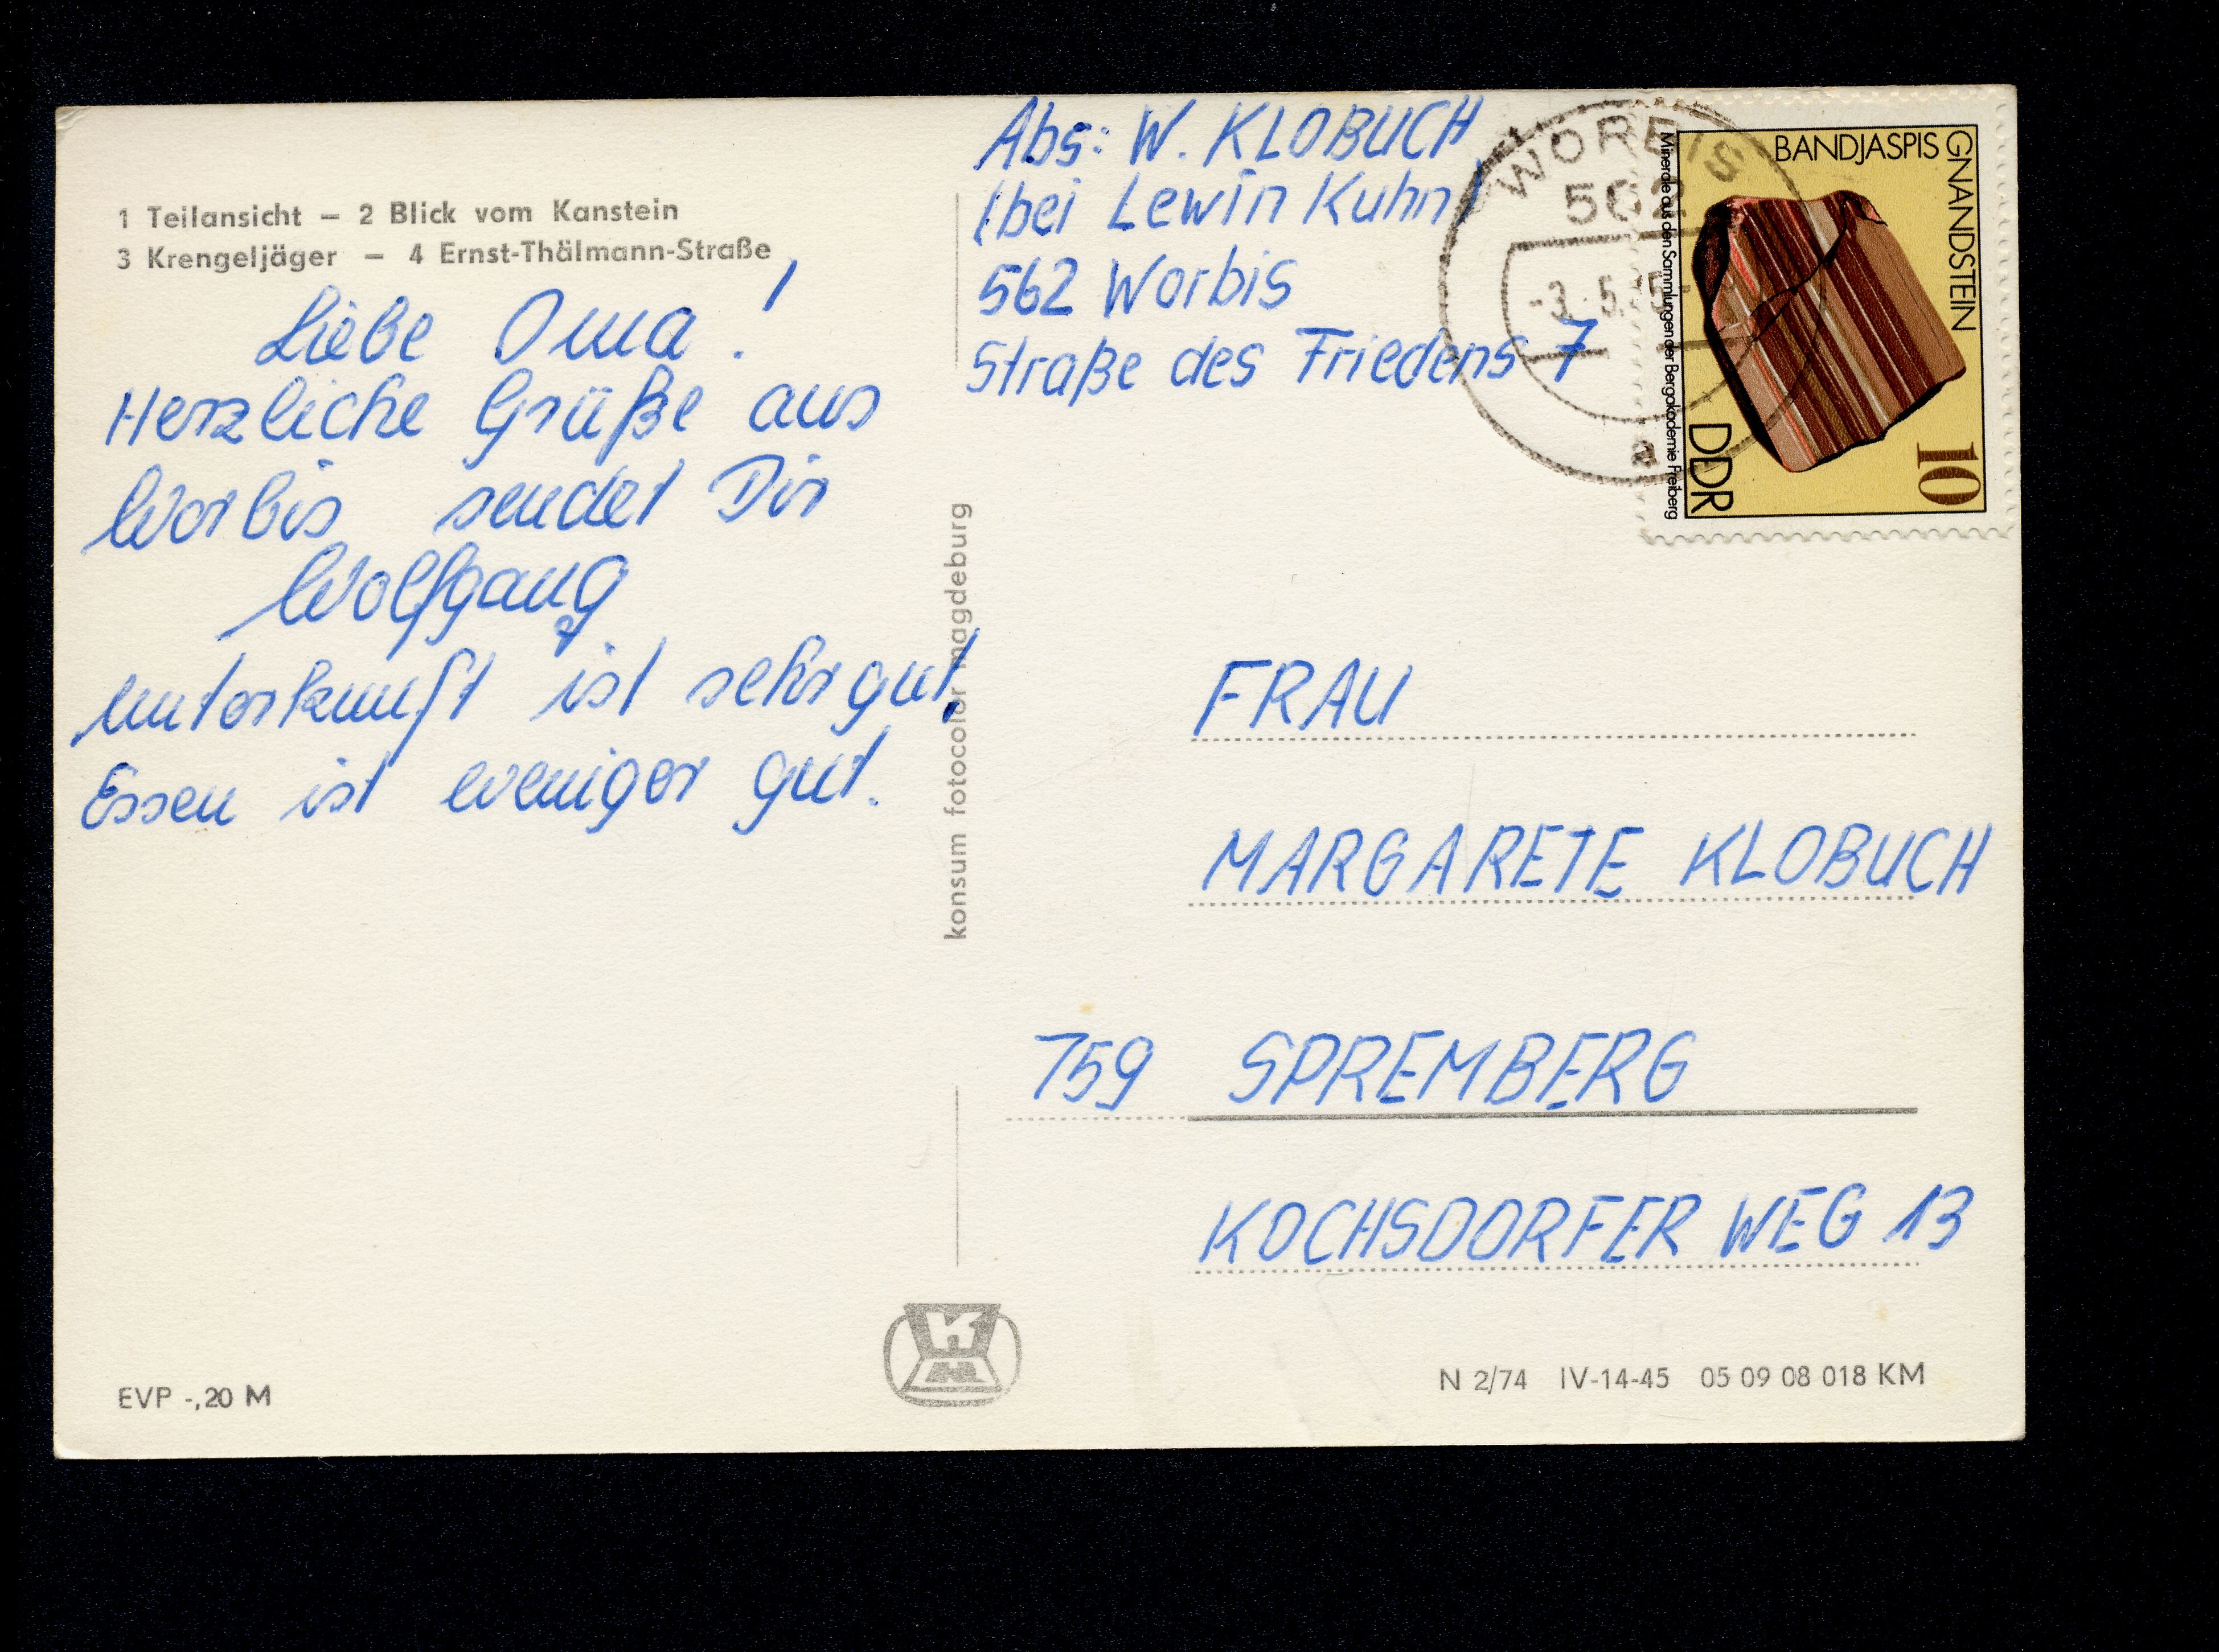 1 Teilansicht – 2 Blick vom Kanstein
3 Krengeljäger – 4 Ernst-Thälmann-Straße
Liebe Oma!
Herzliche Grüße aus
Worbis sendet Dir
Wolfgang
Unterkunft ist sehr gut,
Essen ist weniger gut.
EVP -,20 M
konsum fotocolor magdeburg
Abs: W. KLOBUCH
(bei Lewin Kuhn)
562 Worbis
Straße des Friedens 7
WORBIS
562
-3.5.75-
a
BANDJASPIS GNANDSTEIN
Minerale aus den Sammlungen der Bergakademie Freiberg
DDR
10
FRAU
MARGARETE KLOBUCH
759 SPREMBERG
KOCHSDORFER WEG 13
K
M
N 2/74 IV-14-45 05 09 08 018 KM